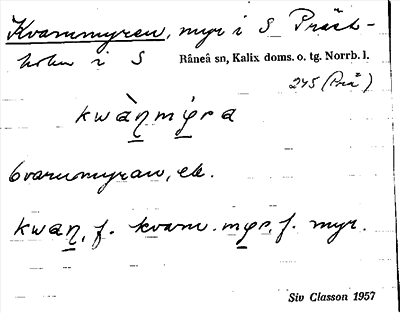 Kvarnmyren, myr i S Präst-
holm i S
Råneå sn, Kalix doms. o. tg. Norrb. l.
245 (Prä)
kwàn̲my̲ra
kvarnmyran, ek.
kwan̲, f. kvarn. my̲r, f. myr.
Siv Classon 1957